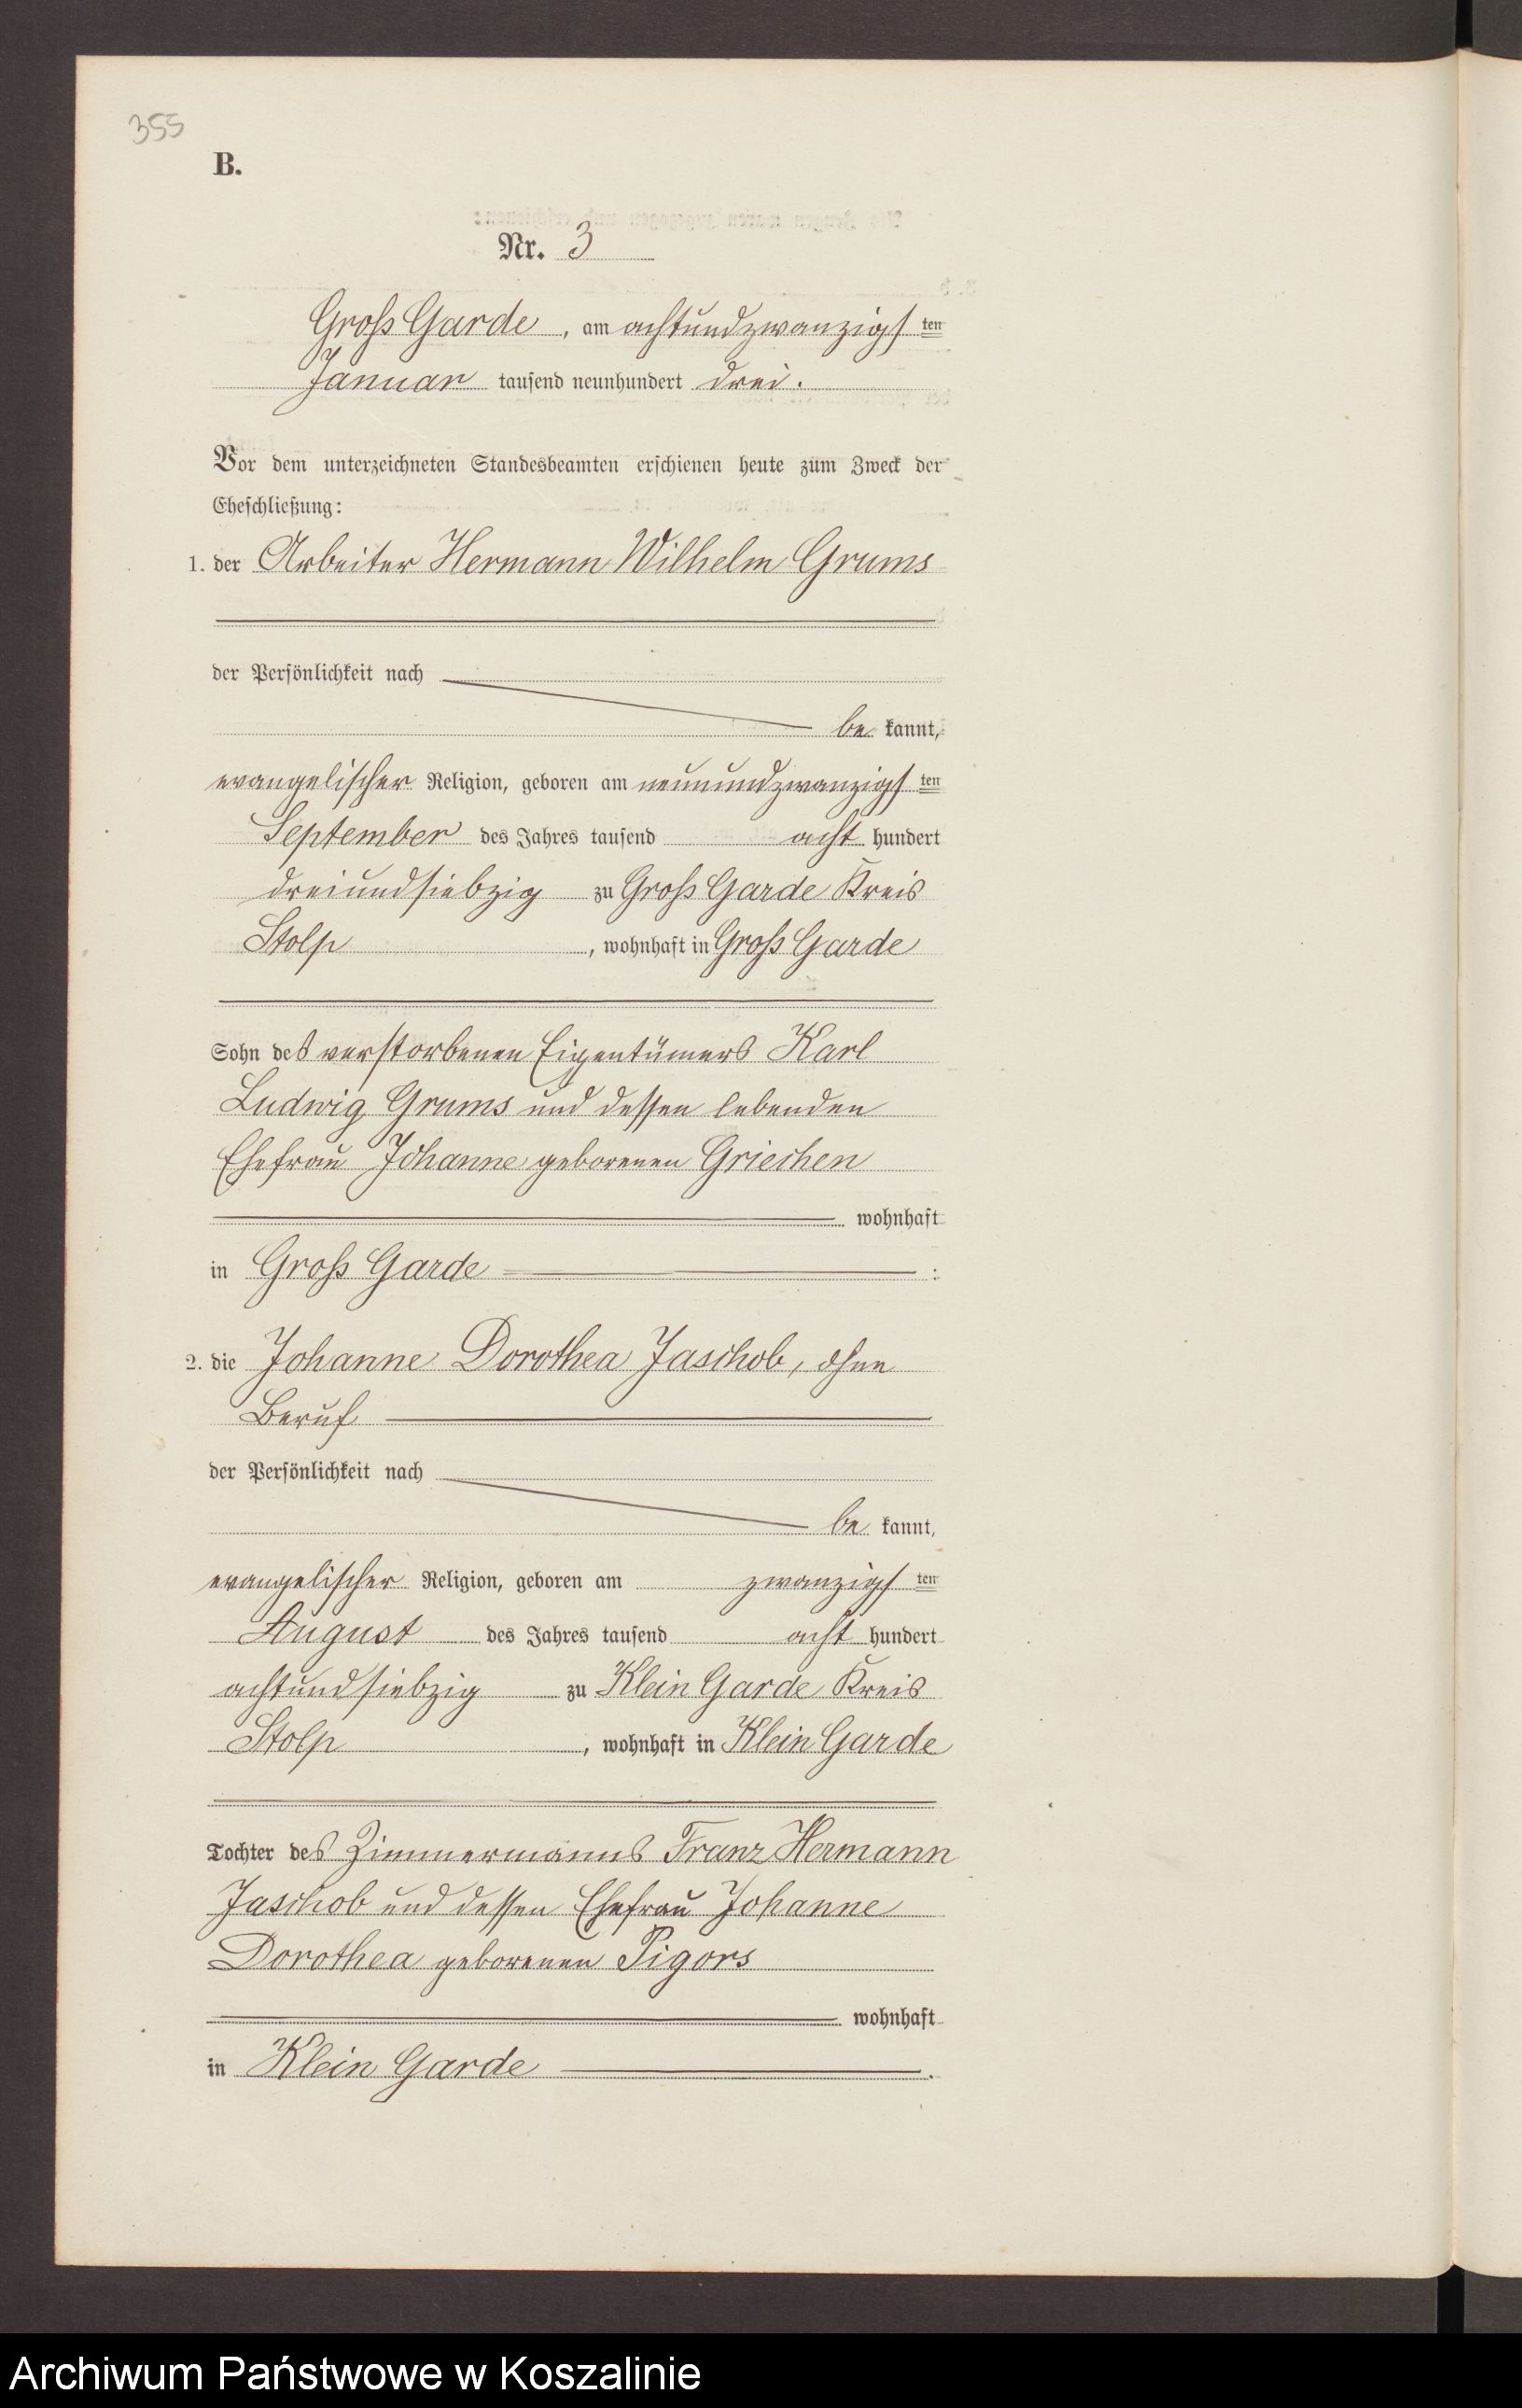 355
B.
Nr. 3
Groß Garde, am achtundzwanzigsten
Januar tausend neunhundert drei.
Vor dem unterzeichneten Standesbeamten erschienen heute zum Zweck der
Eheschließung:
1. der Arbeiter Hermann Wilhelm Grums
der Persönlichkeit nach
be kannt,
evangelischer Religion, geboren am neunundzwanzigsten
September des Jahres tausend acht hundert
dreiundsiebzig zu Groß Garde Kreis
Stolp, wohnhaft in Groß Garde
Sohn des verstorbenen Eigentümers Karl
Ludwig Grums und dessen lebenden
Ehefrau Johanne geborenen Griechen
wohnhaft
in Groß Garde :
2. die Johanne Dorothea Jaschob, ohne
Beruf
der Persönlichkeit nach
be kannt,
evangelischer Religion, geboren am zwanzigsten
August des Jahres tausend acht hundert
achtundsiebzig zu Klein Garde Kreis
Stolp, wohnhaft in Klein Garde
Tochter des Zimmermanns Franz Hermann
Jaschob und dessen Ehefrau Johanne
Dorothea geborenen Pigors
wohnhaft
in Klein Garde.
Archiwum Państwowe w Koszalinie